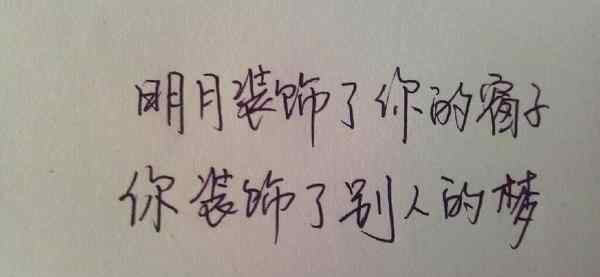 明月装饰了你的窗子
你装饰了别人的梦